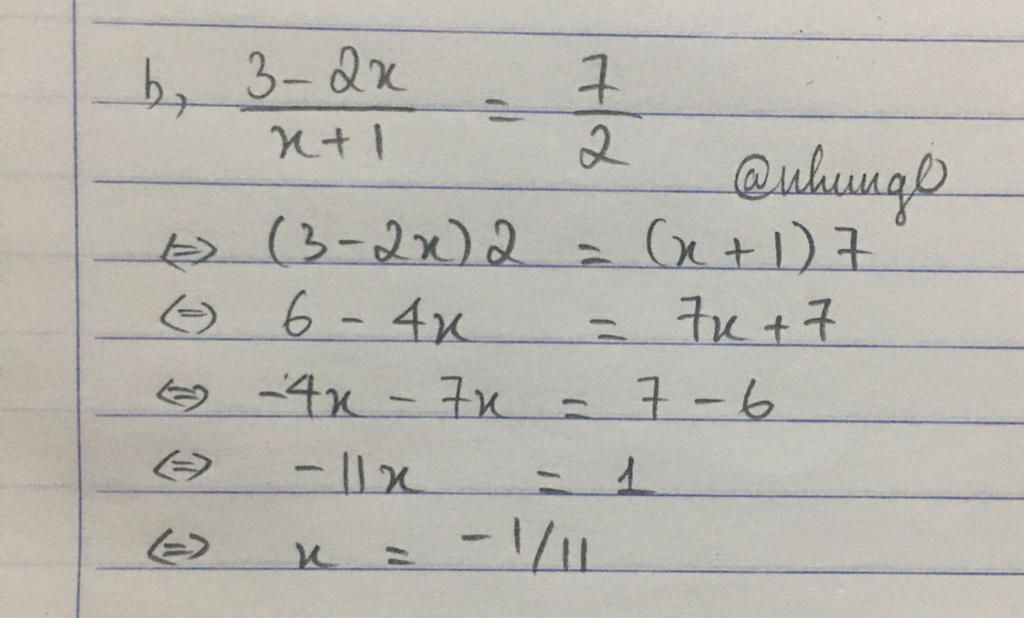 b, (3-2x)/(x+1) = 7/2
@nhungl
⇔ (3-2x)2 = (x+1)7
⇔ 6-4x = 7x+7
⇔ -4x-7x = 7-6
⇔ -11x = 1
⇔ x = -1/11